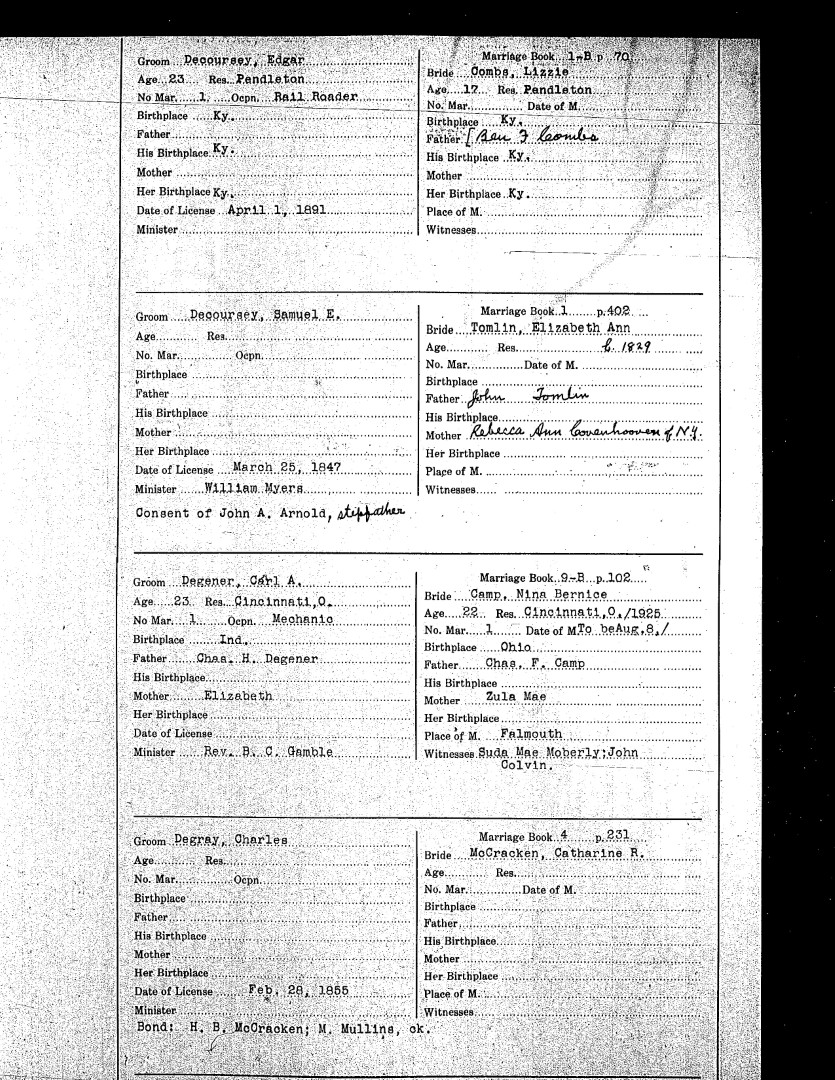 Groom Decoursey, Edgar
Age 23 Res. Pendleton
No Mar. 1. Ocpn. Rail Roader
Birthplace Ky.
Father
His Birthplace Ky.
Mother
Her Birthplace Ky.
Date of License April 1, 1891
Minister
Marriage Book 1-B p 70
Bride Combs, Lizzie
Age 17 Res. Pendleton
No. Mar. Date of M.
Birthplace Ky.
Father [Ben F Combs
His Birthplace Ky.
Mother
Her Birthplace Ky.
Place of M.
Witnesses
Groom Decoursey, Samuel E.
Age Res.
No. Mar. Ocpn.
Birthplace
Father
His Birthplace
Mother
Her Birthplace
Date of License March 25, 1847
Minister William Myers
Consent of John A. Arnold, stepfather
Marriage Book 1 p. 402
Bride Tomlin, Elizabeth Ann
Age Res. b. 1829
No. Mar. Date of M.
Birthplace
Father John Tomlin
His Birthplace
Mother Rebecca Ann Covenhooven of N.Y.
Her Birthplace
Place of M.
Witnesses
Groom Degener, Carl A.
Age 23 Res. Cincinnati,O.
No Mar. 1 Ocpn. Mechanic
Birthplace Ind.
Father Chas. H. Degener
His Birthplace
Mother Elizabeth
Her Birthplace
Date of License
Minister Rev. B. C. Gamble
Marriage Book 9-B p. 102
Bride Camp, Nina Bernice
Age 22 Res. Cincinnati,O./1925
No. Mar. 1 Date of M To beAug.8,/
Birthplace Ohio
Father Chas. F. Camp
His Birthplace
Mother Zula Mae
Her Birthplace
Place of M. Falmouth
Witnesses Suda Mae Moberly;John
Colvin.
Groom Degray, Charles
Age Res.
No. Mar. Ocpn.
Birthplace
Father
His Birthplace
Mother
Her Birthplace
Date of License Feb. 28, 1855
Minister
Bond: H. B. McCracken; M. Mullins, ok.
Marriage Book 4 p. 231
Bride McCracken, Catharine R.
Age Res.
No. Mar. Date of M.
Birthplace
Father
His Birthplace
Mother
Her Birthplace
Place of M.
Witnesses